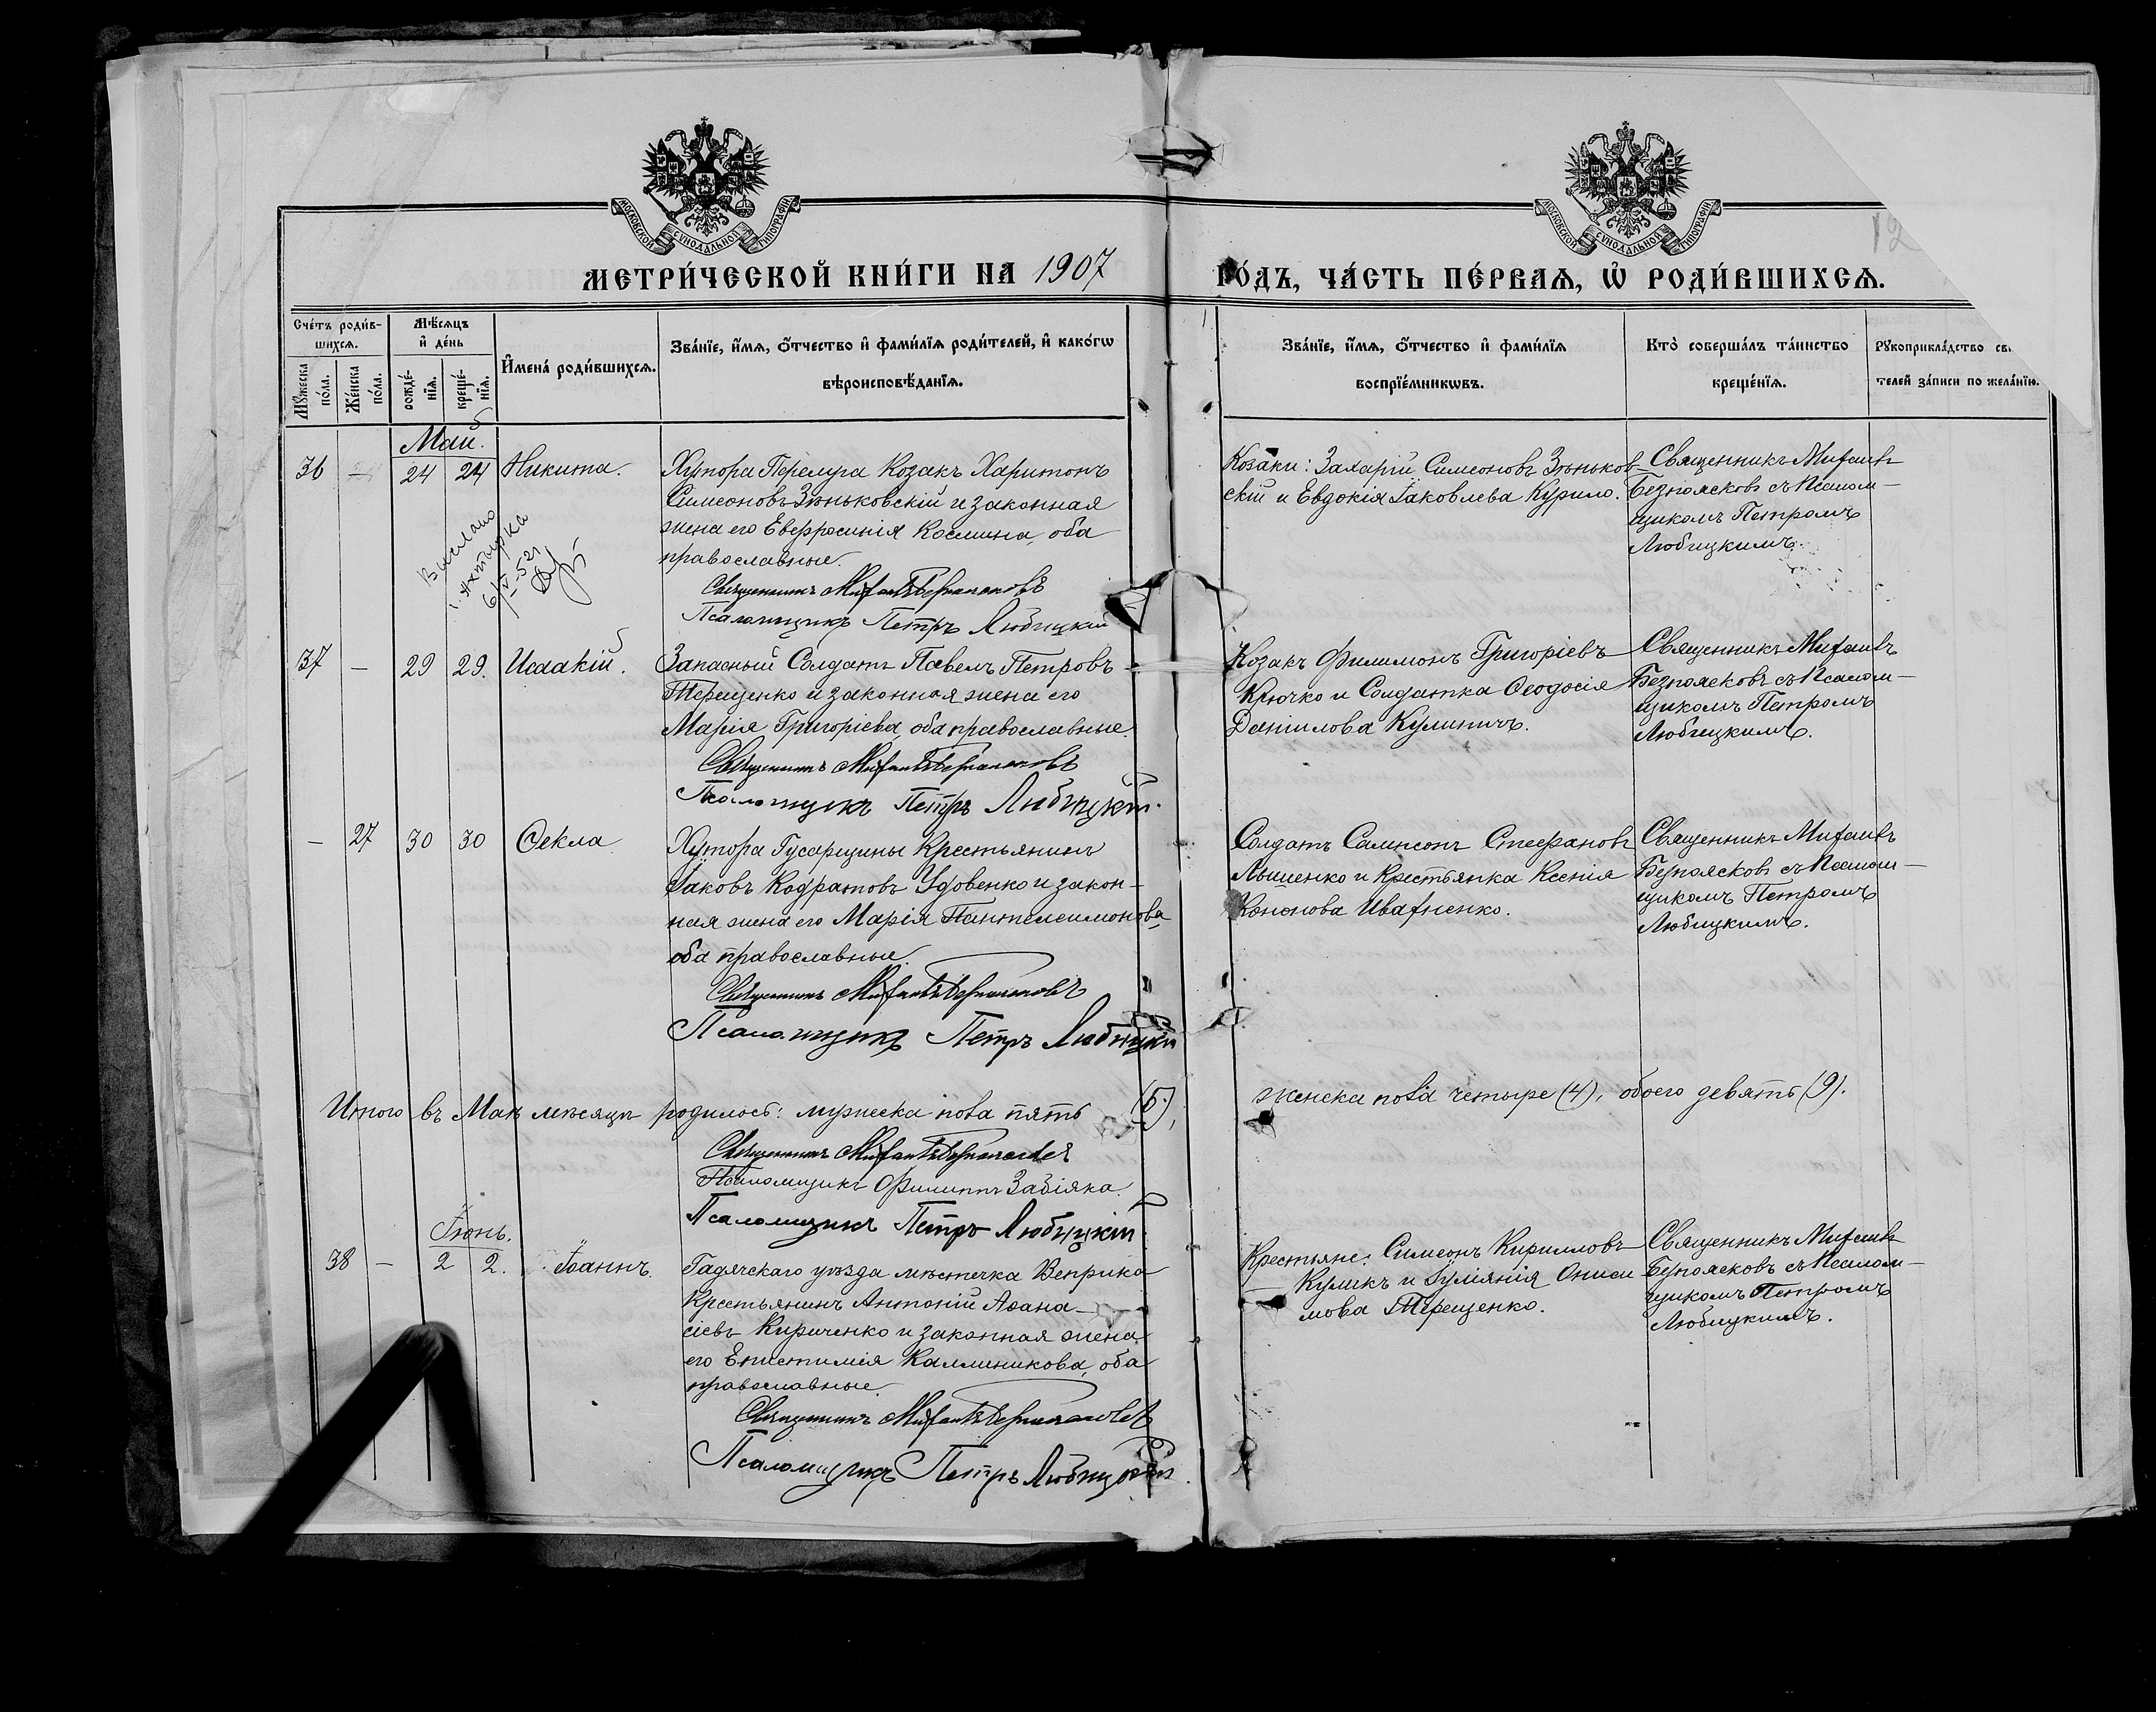 МОСКОВСКОЙ СѴНОДАЛЬНОЙ ТИПОГРАФІИ
МОСКОВСКОЙ СѴНОДАЛЬНОЙ ТИПОГРАФІИ
12
МЕТРИ́ЧЕСКОЙ КНИ́ГИ НА 1907
ГО́ДЪ, ЧА́СТЬ ПЕ́РВАѦ, Ѡ҆ РОДИ́ВШИХСѦ.
Сче́тъ роди́вшихсѧ.
Мꙋ́жеска по́ла.
Же́нска по́ла.
Мѣ́сѧцъ и҆ де́нь
рожде́нїѧ.
креще́нїѧ.
И҆мена̀ роди́вшихсѧ.
Зва́нїе, и҆́мѧ, ѻ҆́тчество и҆ фами́лїѧ роди́телей, и҆ како́гѡ
вѣроисповѣ́данїѧ.
Зва́нїе, и҆́мѧ, ѻ҆́тчество и҆ фами́лїѧ
воспрїе́мникѡвъ.
Кто̀ соверша́лъ та́инство
креще́нїѧ.
Рꙋкоприкла́дство св
телей за́писи по жела́нїю.
Май.
36 — 24 24 Никита.
Хутора Перелуга Козакъ Харитонъ
Симеоновъ Зѣньковскій и законная
жена его Евфросинія Космина, оба
православные.
Священникъ Михаилъ Безпоясковъ
Псаломщикъ Петръ Любицкій
Козаки: Захарій Симеоновъ Зѣньков-
скій и Евдокія Іаковлева Курило.
Священникъ Михаилъ
Безпоясковъ съ Псалом-
щикомъ Петромъ
Любицкимъ.
Выслано
г. Ахтырка
6/V-52
37 — 29 29. Исаакій.
Запасный Солдатъ Павелъ Петровъ
Терещенко и законная жена его
Марія Григоріева, оба православные.
Священникъ Михаилъ Безпоясковъ
Псаломщикъ Петръ Любицкій.
Козакъ Филимонъ Григоріевъ
Крючко и Солдатка Ѳеодосія
Даніилова Кулиничъ.
Священникъ Михаилъ
Безпоясковъ съ Псалом-
щикомъ Петромъ
Любицкимъ.
— 27 30 30 Ѳекла
Хутора Гусарщины Крестьянинъ
Іаковъ Кодратовъ Удовенко и закон-
ная жена его Марія Пантелеимонова,
оба православные.
Священникъ Михаилъ Безпоясковъ
Псаломщикъ Петръ Любицкій
Солдатъ Сампсонъ Стефановъ
Лышенко и Крестьянка Ксенія
Кононова Ивахненко.
Священникъ Михаилъ
Безпоясковъ съ Псалом-
щикомъ Петромъ
Любицкимъ.
Итого въ Маѣ мѣсяцѣ родилось: мужеска пола пять (5), женска пола четыре (4), обоего девять (9).
Священникъ Михаилъ Безпоясковъ
Псаломщикъ Филиппъ Забіяка.
Псаломщикъ Петръ Любицкій
Іюнь.
38 — 2 2. Іоаннъ.
Гадячскаго уѣзда мѣстечка Веприка
Крестьянинъ Антоній Аѳана-
сіевъ Кириченко и законная жена
его Епистимія Каллиникова, оба
православные.
Священникъ Михаилъ Безпоясковъ
Псаломщикъ Петръ Любицкій.
Крестьяне: Симеонъ Кирилловъ
Куликъ и ІуліяніяОниси
мова Терещенко.
Священникъ Михаилъ
Безпоясковъ съ Псалом-
щикомъ Петромъ
Любицкимъ.